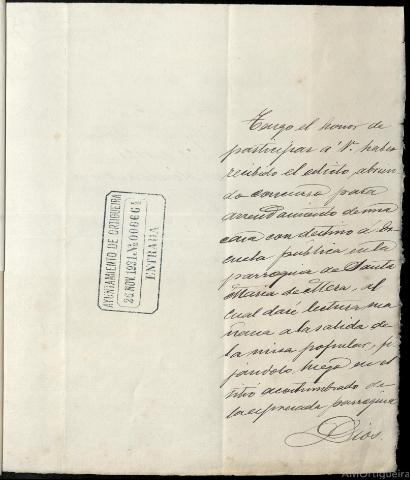 AYUNTAMIENTO DE ORTIGUEIRA
26 NOV. 1931 Nº 000664
ENTRADA
Tengo el honor de
participar á V. haber
recibido el edicto abrien-
do concurso para
arrendamiento de una
casa con destino a Es-
cuela pública en la
parroquia de Santa
Maria de Mera, al
cual daré lectura ma-
ñana a la salida de
la misa popular, fi-
jandolo luego en el
sitio acostumbrado de
la expresada parroquia
Dios
AMOrtigueira